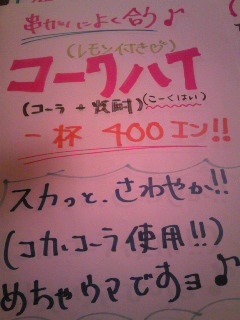 串カツによく合う♪
(レモン付きで)
コークハイ
(コーラ + 焼酎)(こーくはい)
一杯 400エン!!
スカっと、さわやか!!
(コカ・コーラ使用!!)
めちゃウマですョ♪